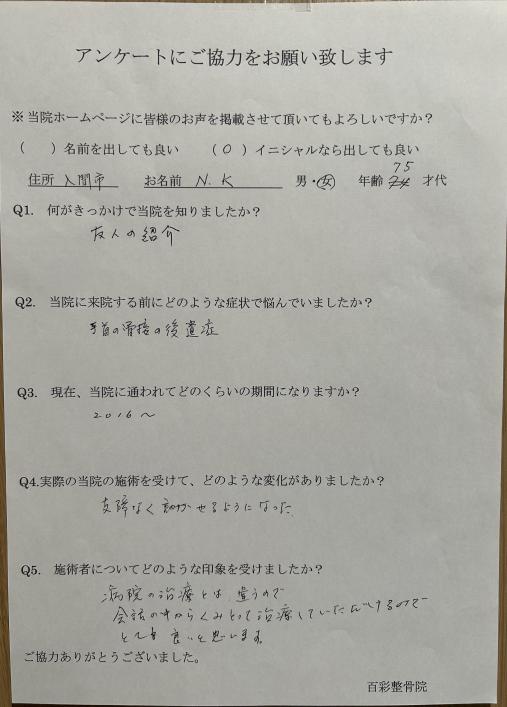 アンケートにご協力をお願い致します
※当院ホームページに皆様のお声を掲載させて頂いてもよろしいですか？
（　　）名前を出しても良い　　（○）イニシャルなら出しても良い
住所 入間市　お名前 N. K　男・女　年齢 75 才代
Q1.　何がきっかけで当院を知りましたか？
友人の紹介
Q2.　当院に来院する前にどのような症状で悩んでいましたか？
手首の骨接の後遺症
Q3.　現在、当院に通われてどのくらいの期間になりますか？
2016〜
Q4.実際の当院の施術を受けて、どのような変化がありましたか？
支障なく動かせるようになった
Q5.　施術者についてどのような印象を受けましたか？
病院の治療とは違うので
会話の中からくみとって治療していただけるので
とても良いと思います。
ご協力ありがとうございました。
百彩整骨院